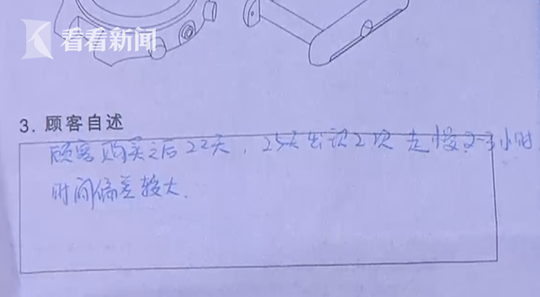 看看新闻
3. 顾客自述
顾客购买之后22天，25天出现2次走慢2-3小时
时间偏差较大.